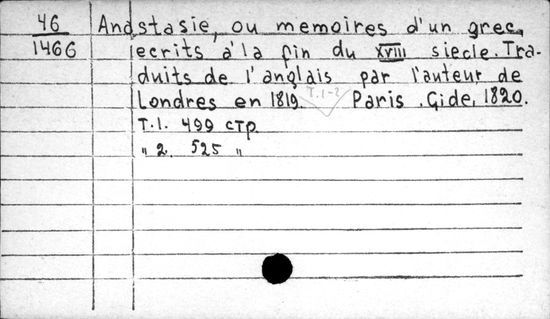 46 Anastasie, ou memoires d'un grec,
1466 ecrits à la fin du XVIII siecle. Tra-
duits de l'anglais par l'auteur de
Londres en 1819. T.1-2 Paris. Gide, 1820.
T.1. 499 стр.
" 2. 525 "